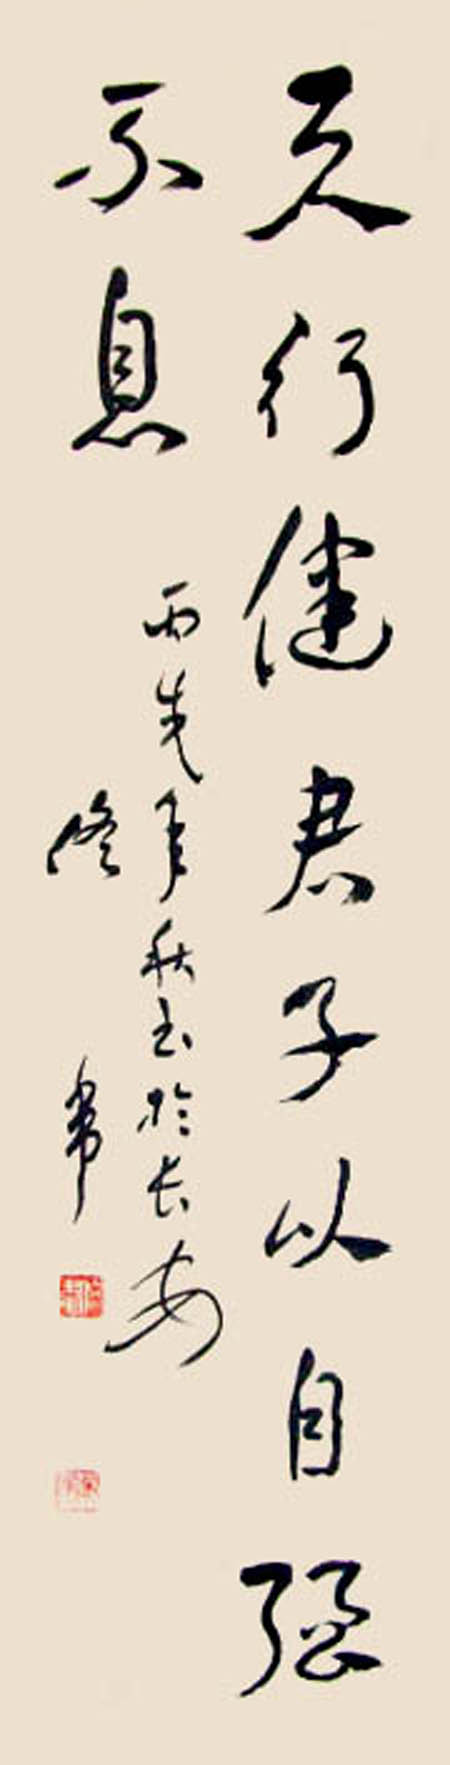 天行健君子以自强
不息
丙戌年秋书於长安